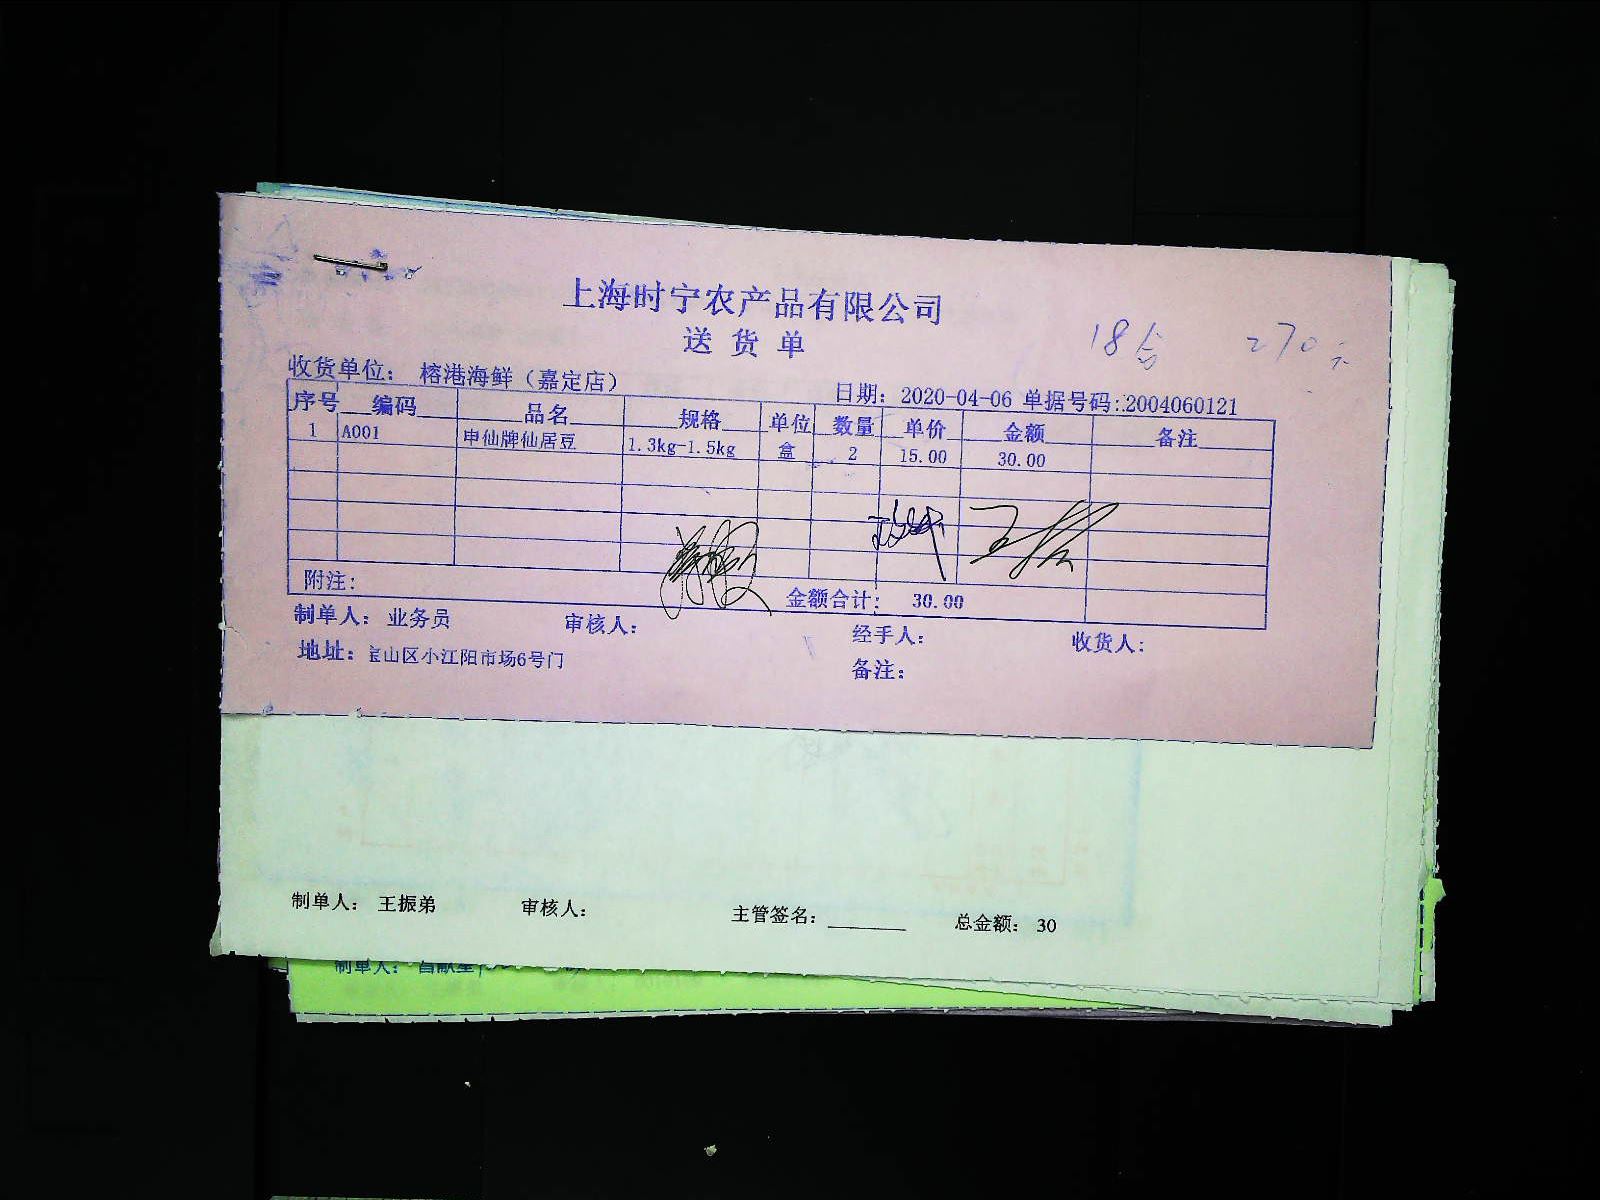 上海时宁农产品有限公司
送货单
18台 270元
收货单位： 榕港海鲜（嘉定店） 日期： 2020-04-06 单据号码：2004060121
序号 编码 品名 规格 单位 数量 单价 金额 备注
1 A001 申仙牌仙居豆 1.3kg-1.5kg 盒 2 15.00 30.00
附注： 金额合计： 30.00
制单人： 业务员 审核人： 经手人： 收货人：
地址： 宝山区小江阳市场6号门 备注：
制单人： 王振弟 审核人： 主管签名： 总金额： 30
制单人：